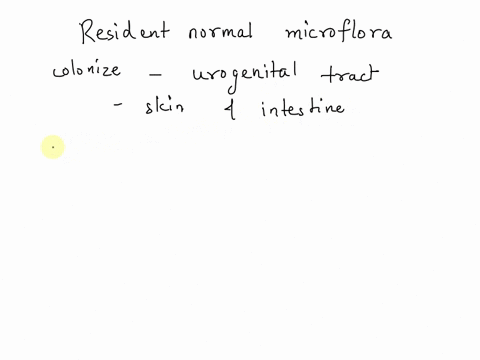 Resident normal microflora
colonize - urogenital tract
- skin & intestine